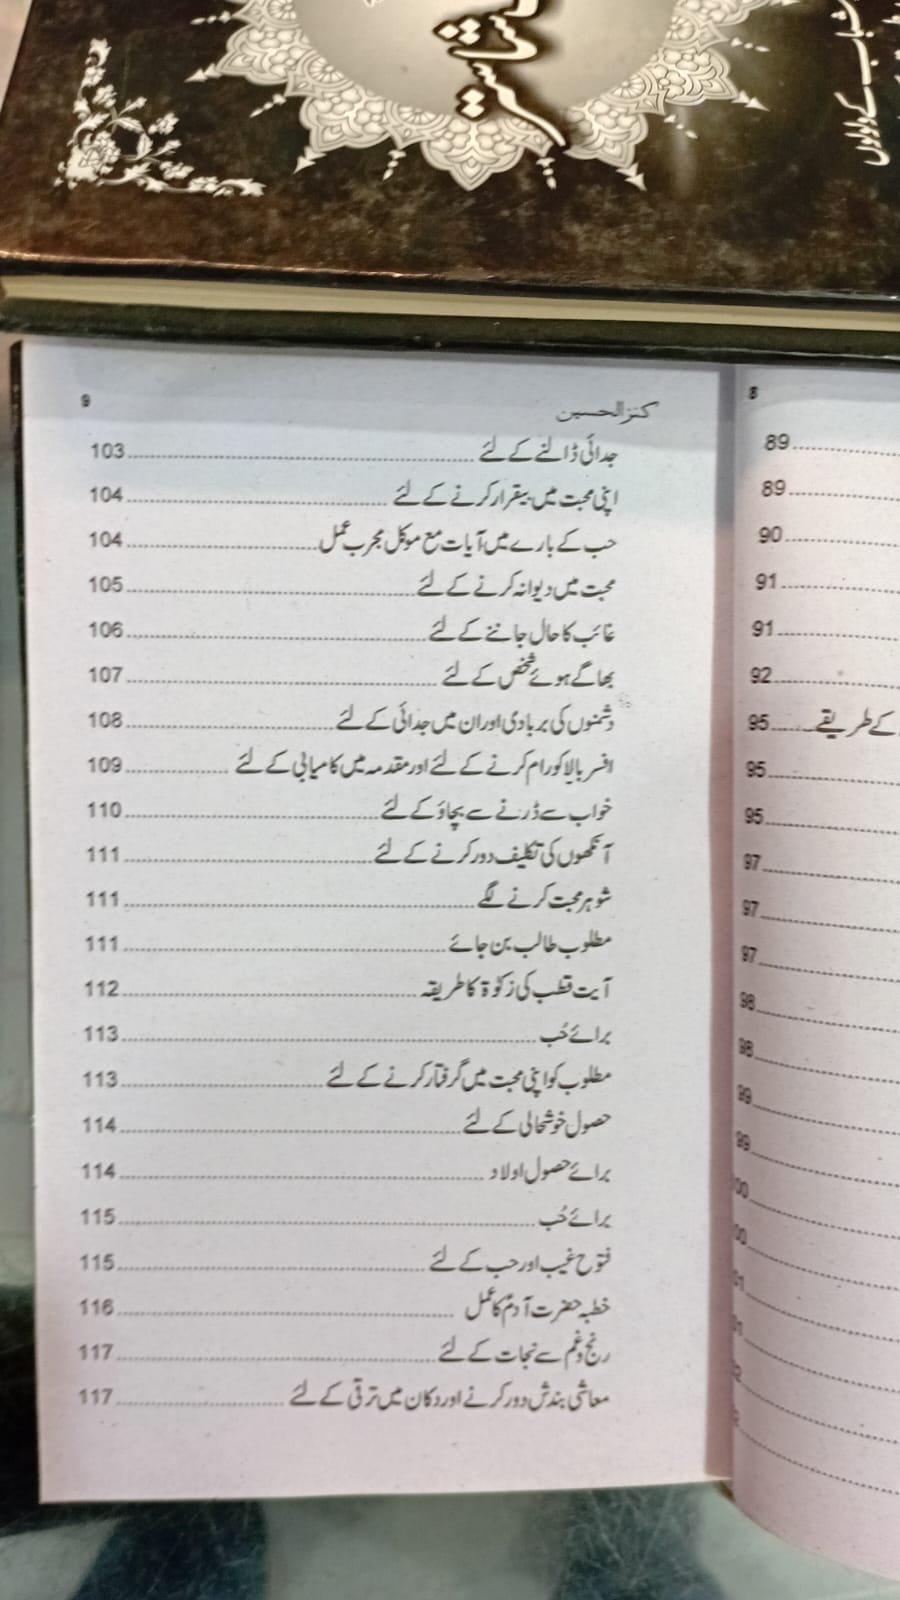 شاستر
شباب کے ولولوں
9
کنز الحسین
جدائی ڈالنے کے لئے ... 103
اپنی محبت میں بیقرار کرنے کے لئے ... 104
حب کے بارے میں آیات مع موکل مجرب عمل ... 104
محبت میں دیوانہ کرنے کے لئے ... 105
غائب کا حال جاننے کے لئے ... 106
بھاگے ہوئے شخص کے لئے ... 107
دشمنوں کی بربادی اور ان میں جدائی کے لئے ... 108
افسر بالا کو رام کرنے کے لئے اور مقدمہ میں کامیابی کے لئے ... 109
خواب سے ڈرنے سے بچاؤ کے لئے ... 110
آنکھوں کی تکلیف دور کرنے کے لئے ... 111
شوہر محبت کرنے لگے ... 111
مطلوب طالب بن جائے ... 111
آیت قطب کی زکوٰۃ کا طریقہ ... 112
برائے حُب ... 113
مطلوب کو اپنی محبت میں گرفتار کرنے کے لئے ... 113
حصول خوشحالی کے لئے ... 114
برائے حصول اولاد ... 114
برائے حُب ... 115
فتوح غیب اور حب کے لئے ... 115
خطبہ حضرت آدمؑ کا عمل ... 116
رنج و غم سے نجات کے لئے ... 117
معاشی بندش دور کرنے اور دکان میں ترقی کے لئے ... 117
8
89
89
90
91
91
92
کے طریقے ... 95
95
95
97
97
97
98
98
99
99